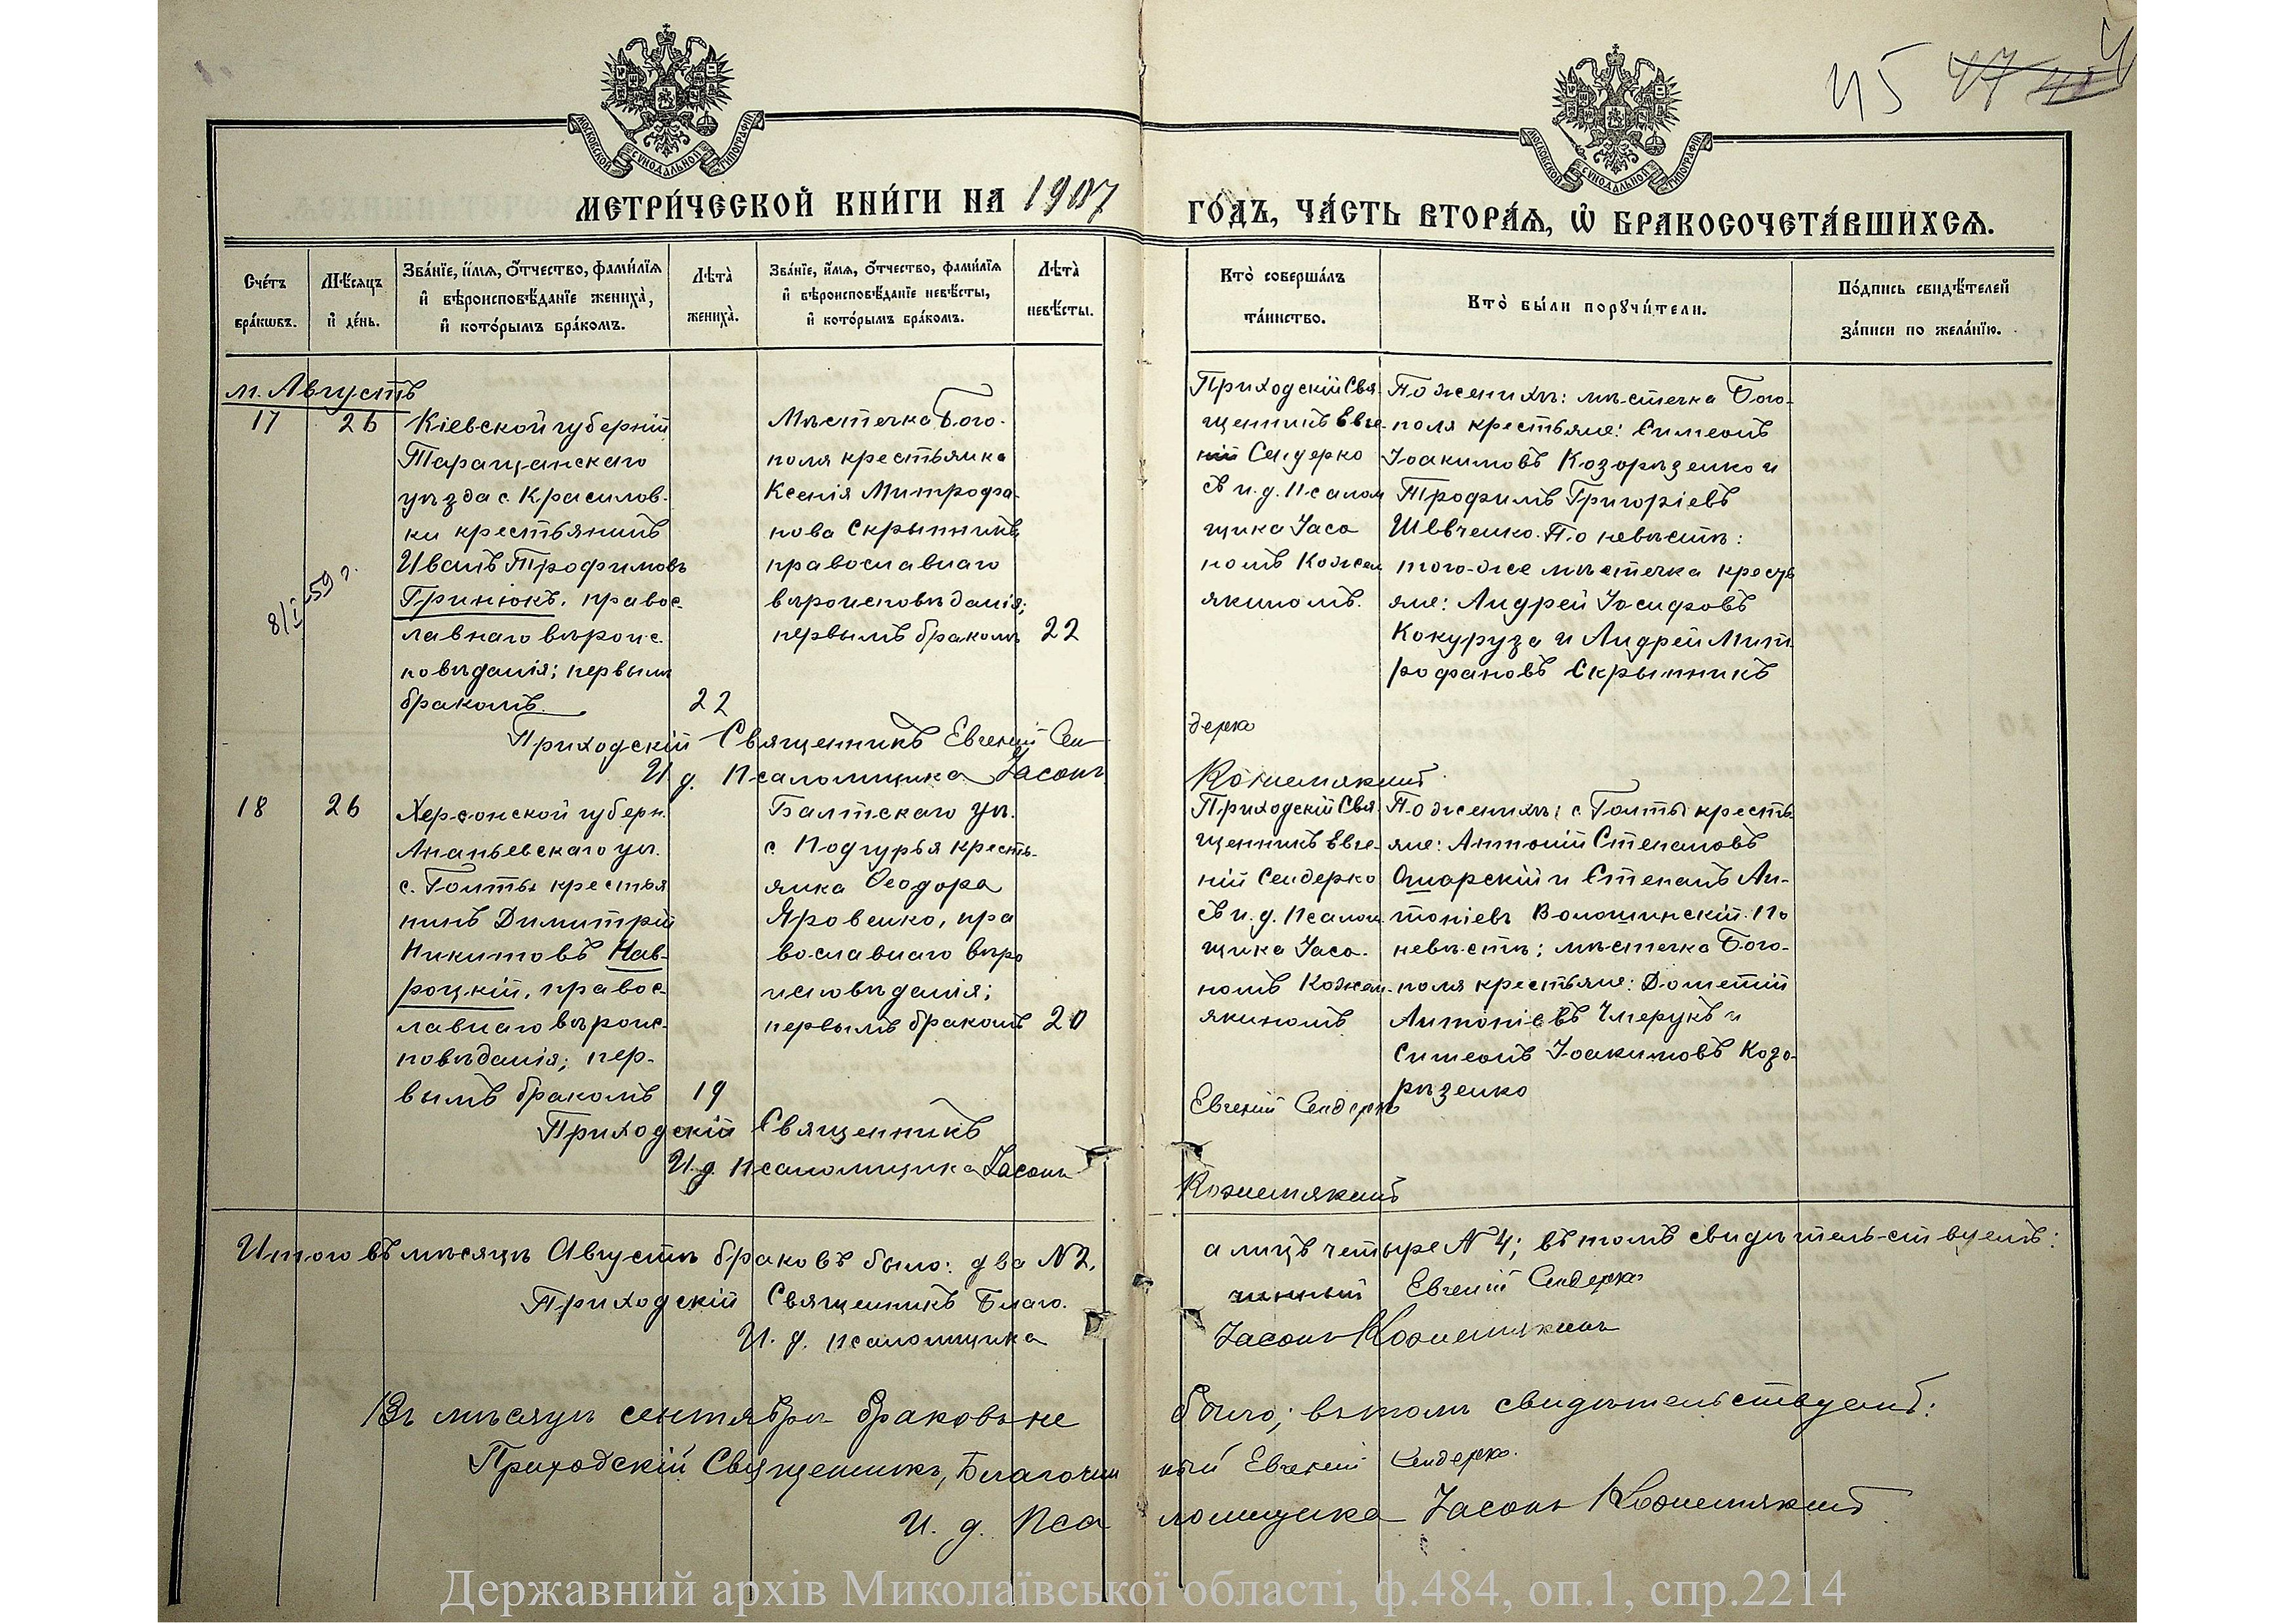 45 47
МОСКОВСКОЙ СѴНОДАЛЬНОЙ ТИПОГРАФІИ
МОСКОВСКОЙ СѴНОДАЛЬНОЙ ТИПОГРАФІИ
МЕТРИ́ЧЕСКОЙ КНИ́ГИ НА 1907
ГО́ДЪ, ЧА́СТЬ ВТОРА́Ѧ, Ѡ҆ БРАКОСОЧЕТА́ВШИХСѦ.
Сче́тъ
бра́кѡвъ.
Мѣ́сѧцъ
и҆ де́нь.
Зва́нїе, и҆́мѧ, о҆́тчество, фами́лїѧ
и҆ вѣроисповѣ́данїе жениха̀,
и҆ кото́рымъ бра́комъ.
Лѣта̀
жениха̀.
Зва́нїе, и҆́мѧ, о҆́тчество, фами́лїѧ
и҆ вѣроисповѣ́данїе невѣ́сты,
и҆ кото́рымъ бра́комъ.
Лѣта̀
невѣ́сты.
Кто̀ соверша́лъ
та́инство.
Кто̀ бы́ли порꙋчи́тели.
По́дпись свидѣ́телей
за́писи по жела́нїю.
м. Августъ
17
26
8/I-59 г.
Кіевской губерніи
Таращанскаго
уѣзда с. Красилов-
ки крестьянинъ
Иванъ Трофимовъ
Гринюкъ, правос-
лавнаго вѣроис-
повѣданія; первымъ
бракомъ.
22
Мѣстечка Бого-
поля крестьянка
Ксенія Митрофа-
нова Скрынникъ
православнаго
вѣроисповѣданія;
первымъ бракомъ
22
Приходскій Свя-
щенникъ Евге-
ній Сендерко
съ и. д. Псалом
щика Іасо
номъ Кожем
якиномъ.
По женихѣ: мѣстечка Бого-
поля крестьяне: Симеонъ
Іоакимовъ Козорѣзенко и
Трофимъ Григоріевъ
Шевченко. По невѣстѣ:
того-же мѣстечка кресть
яне: Андрей Іосифовъ
Кокуруза и Андрей Мит
рофановъ Скрынникъ
Приходскій Священникъ Евгеній Сен
дерко
И. д. Псаломщика Іасонъ
Кожемякинъ
18
26
Херсонской губерн.
Ананьевскаго уѣ.
с. Голты крестья
нинъ Димитрій
Никитовъ Нав-
роцкій, правос-
лавнаго вѣроис-
повѣданія; пер-
вымъ бракомъ
19
Балтскаго уѣ.
с. Подгурья кресть-
янка Ѳеодора
Яровенко, пра
вославнаго вѣро
исповѣданія;
первымъ бракомъ
20
Приходскій Свя
щенникъ Евге-
ній Сендерко
съ и. д. Псалом
щика Іасо-
номъ Кожем-
якиномъ
По женихѣ: с. Голты кресть
яне: Антоній Степановъ
и Степанъ Ан-
тоніевъ Волошинскій. По
невѣстѣ: мѣстечка Бого-
поля крестьяне: Дометій
Антоніевъ Чмерукъ и
Симеонъ Іоакимовъ Козо-
рѣзенко
Приходскій Священникъ
Евгеній Сендерко
И. д. Псаломщика Іасонъ
Кожемякинъ
Итого въ мѣсяцѣ Августѣ браковъ было: два № 2,
а лицъ четыре № 4; въ томъ свидѣтельствуемъ:
Приходскій Священникъ Благо-
чинный Евгеній Сендерко
И. д. псаломщика
Іасонъ Кожемякинъ
Въ мѣсяцѣ сентябрѣ браковъ не
было; въ томъ свидѣтельствуемъ:
Приходскій Священникъ, Благочин
ный Евгеній Сендерко.
И. д. Пса
ломщика Іасонъ Кожемякинъ
Державний архів Миколаївської області, ф.484, оп.1, спр.2214